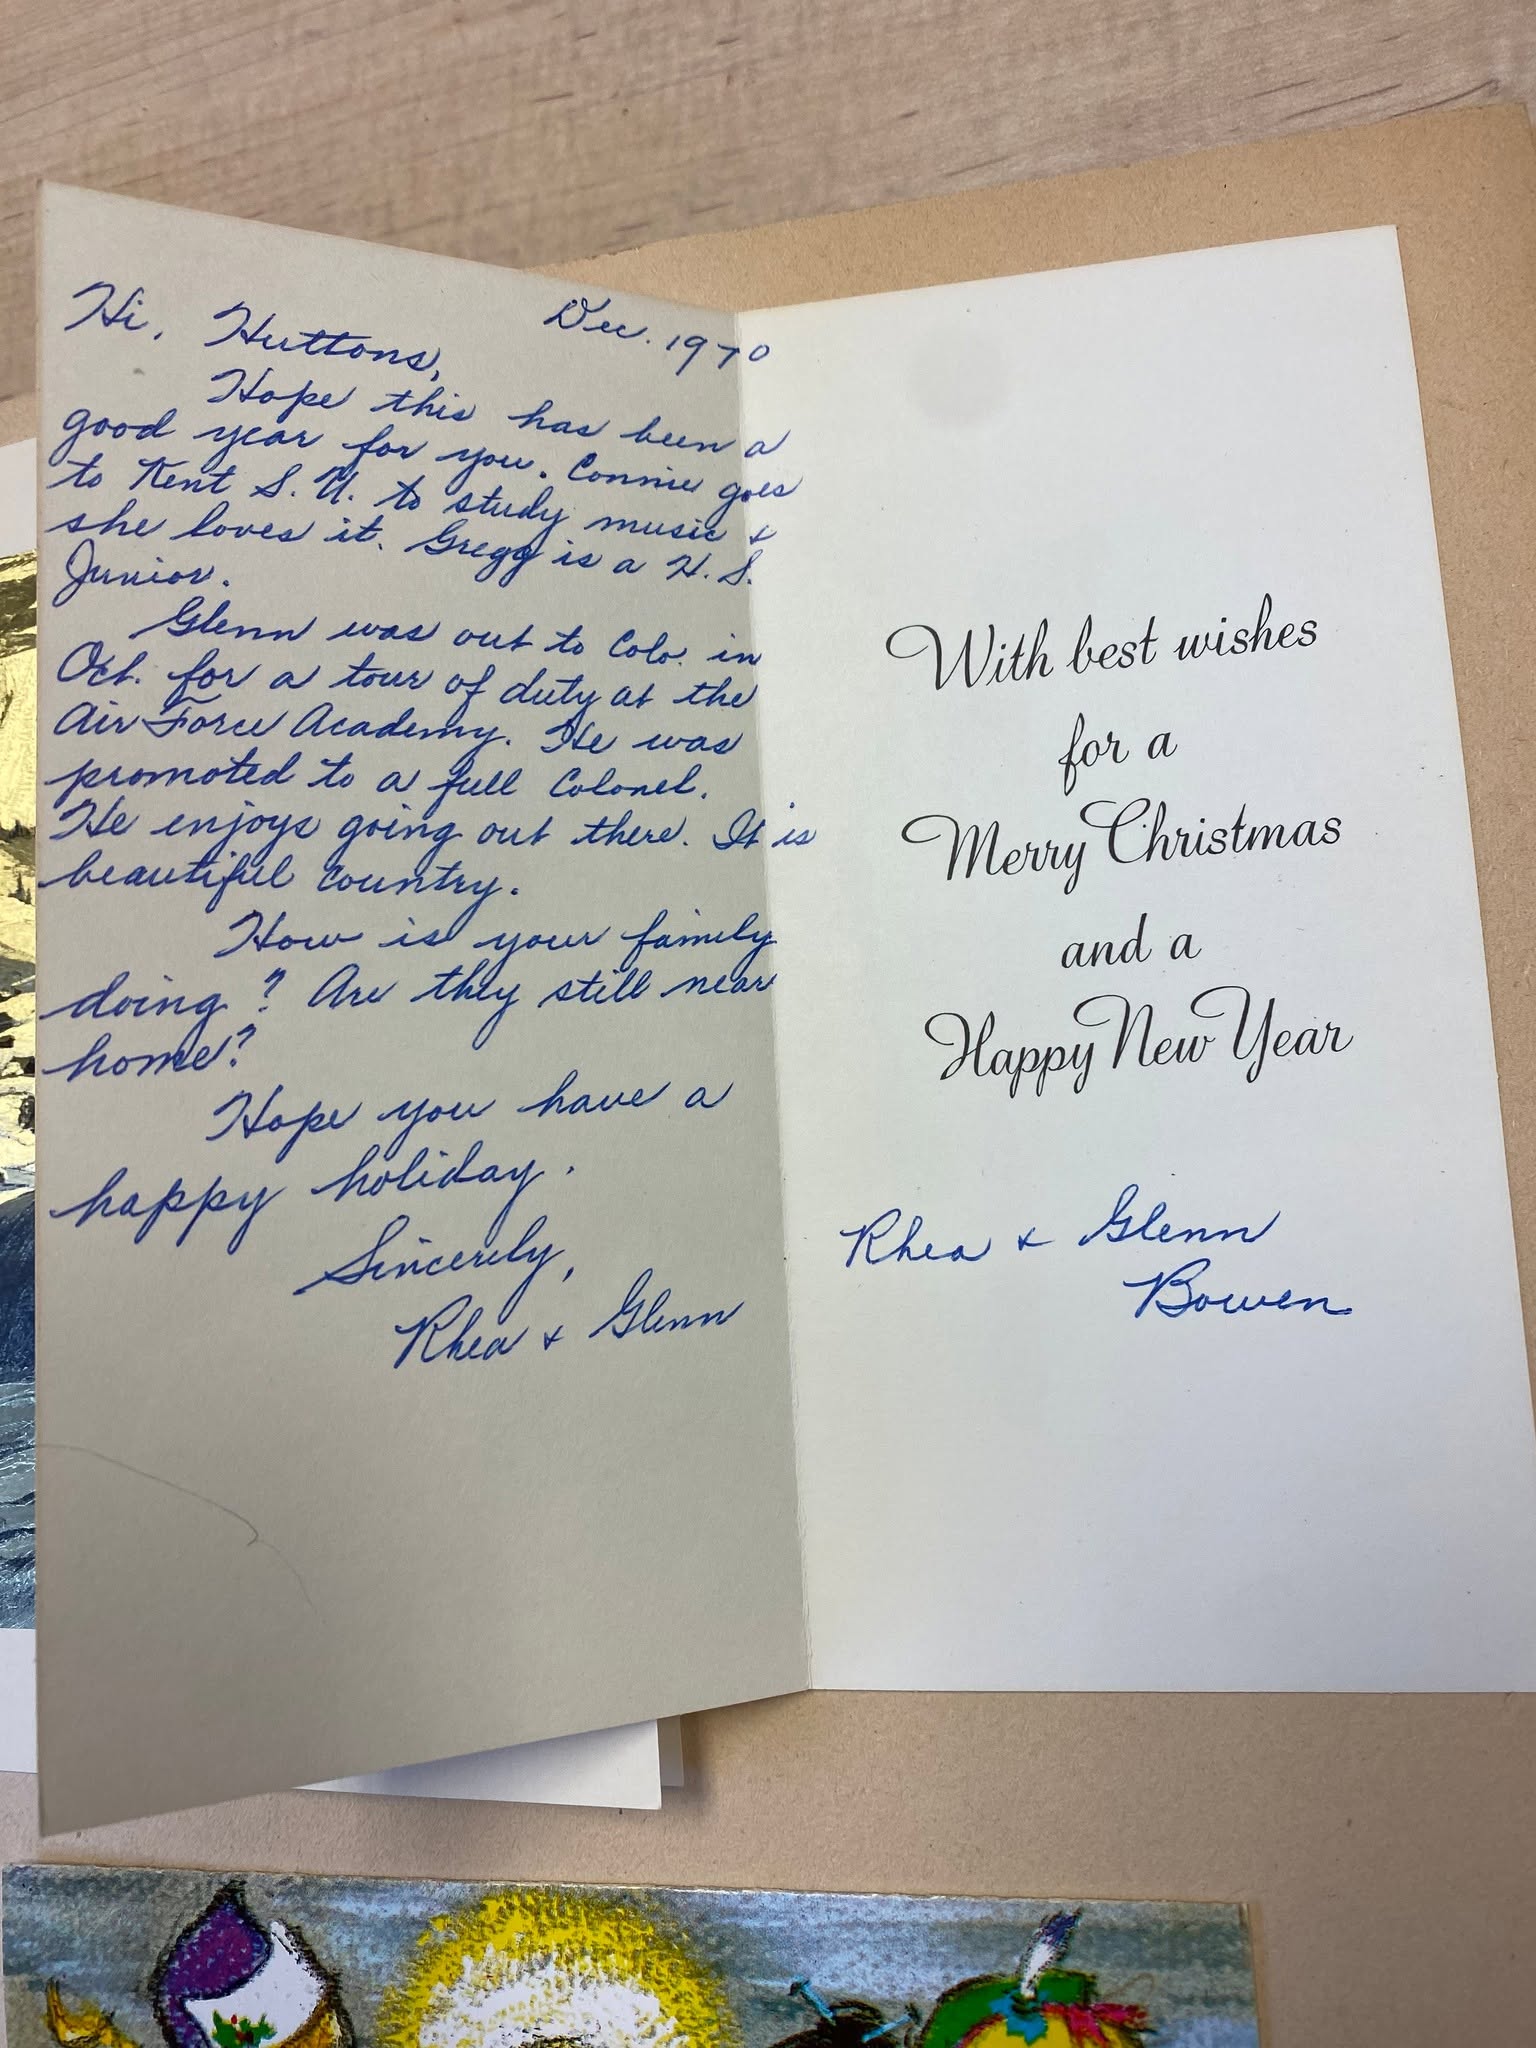 Dec. 1970
Hi, Huttons,
Hope this has been a
good year for you. Connie goes
to Kent S. U. to study music &
she loves it. Gregg is a H. S.
Junior.
Glenn was out to Colo. in
Oct. for a tour of duty at the
Air Force Academy. He was
promoted to a full Colonel.
He enjoys going out there. It is
beautiful country.
How is your family
doing? Are they still near
home?
Hope you have a
happy holiday.
Sincerely,
Rhea & Glenn
With best wishes
for a
Merry Christmas
and a
Happy New Year
Rhea & Glenn
Bowen